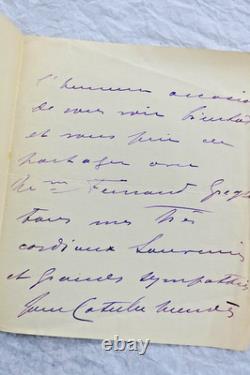 l'heureuse occasion
de vous voir bientôt
et vous prie de
partager avec
Mme Fernand Gregh
tous mes très
cordiaux souvenirs
et grandes sympathies
Jane Catulle Mendès
ebay